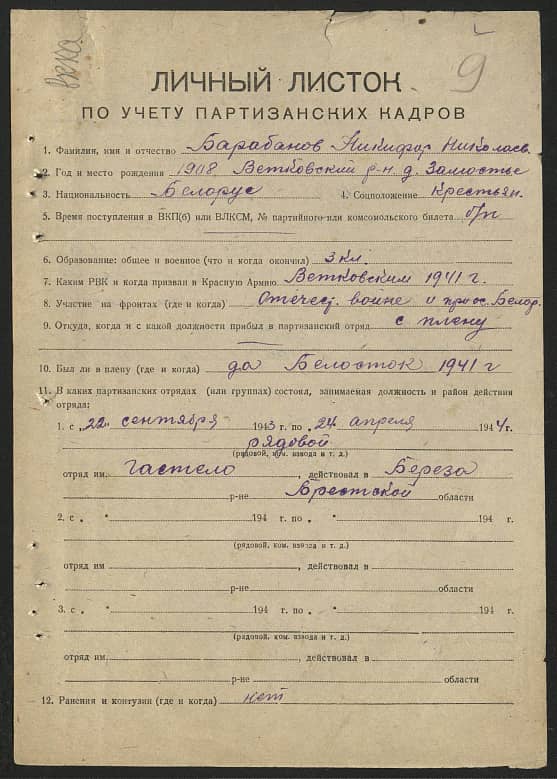 9
ЛИЧНЫЙ ЛИСТОК
ПО УЧЕТУ ПАРТИЗАНСКИХ КАДРОВ
1. Фамилия, имя и отчество Барабанов Никифор Николаев.
2. Год и место рождения 1908 Ветковский р-н д. Замостье
3. Национальность Белорус 4. Соцположение крестьян.
5. Время поступления в ВКП(б) или ВЛКСМ, № партийного или комсомольского билета б/п
6. Образование: общее и военное (что и когда окончил) 3 кл.
7. Каким РВК и когда призван в Красную Армию Ветковским 1941 г.
8. Участие на фронтах (где и когда) Отечест. войне
9. Откуда, когда и с какой должности прибыл в партизанский отряд с плену
10. Был ли в плену (где и когда) да Белосток 1941 г
11. В каких партизанских отрядах (или группах) состоял, занимаемая должность и район действия
отряда:
1. с „22" сентября 1943 г. по „24 апреля 1944 г.
рядовой
(рядовой, ком. взвода и т. д.)
отряд им. гастело, действовал в Береза
р-не Брестской области
2. с „ " 194 г. по „ " 194 г.
(рядовой, ком. взвода и т. д.)
отряд им., действовал в
р-не области
3. с „ " 194 г. по „ " 194 г.
(рядовой, ком. взвода и т. д.)
отряд им. действовал в
р-не области
12. Ранения и контузии (где и когда) нет